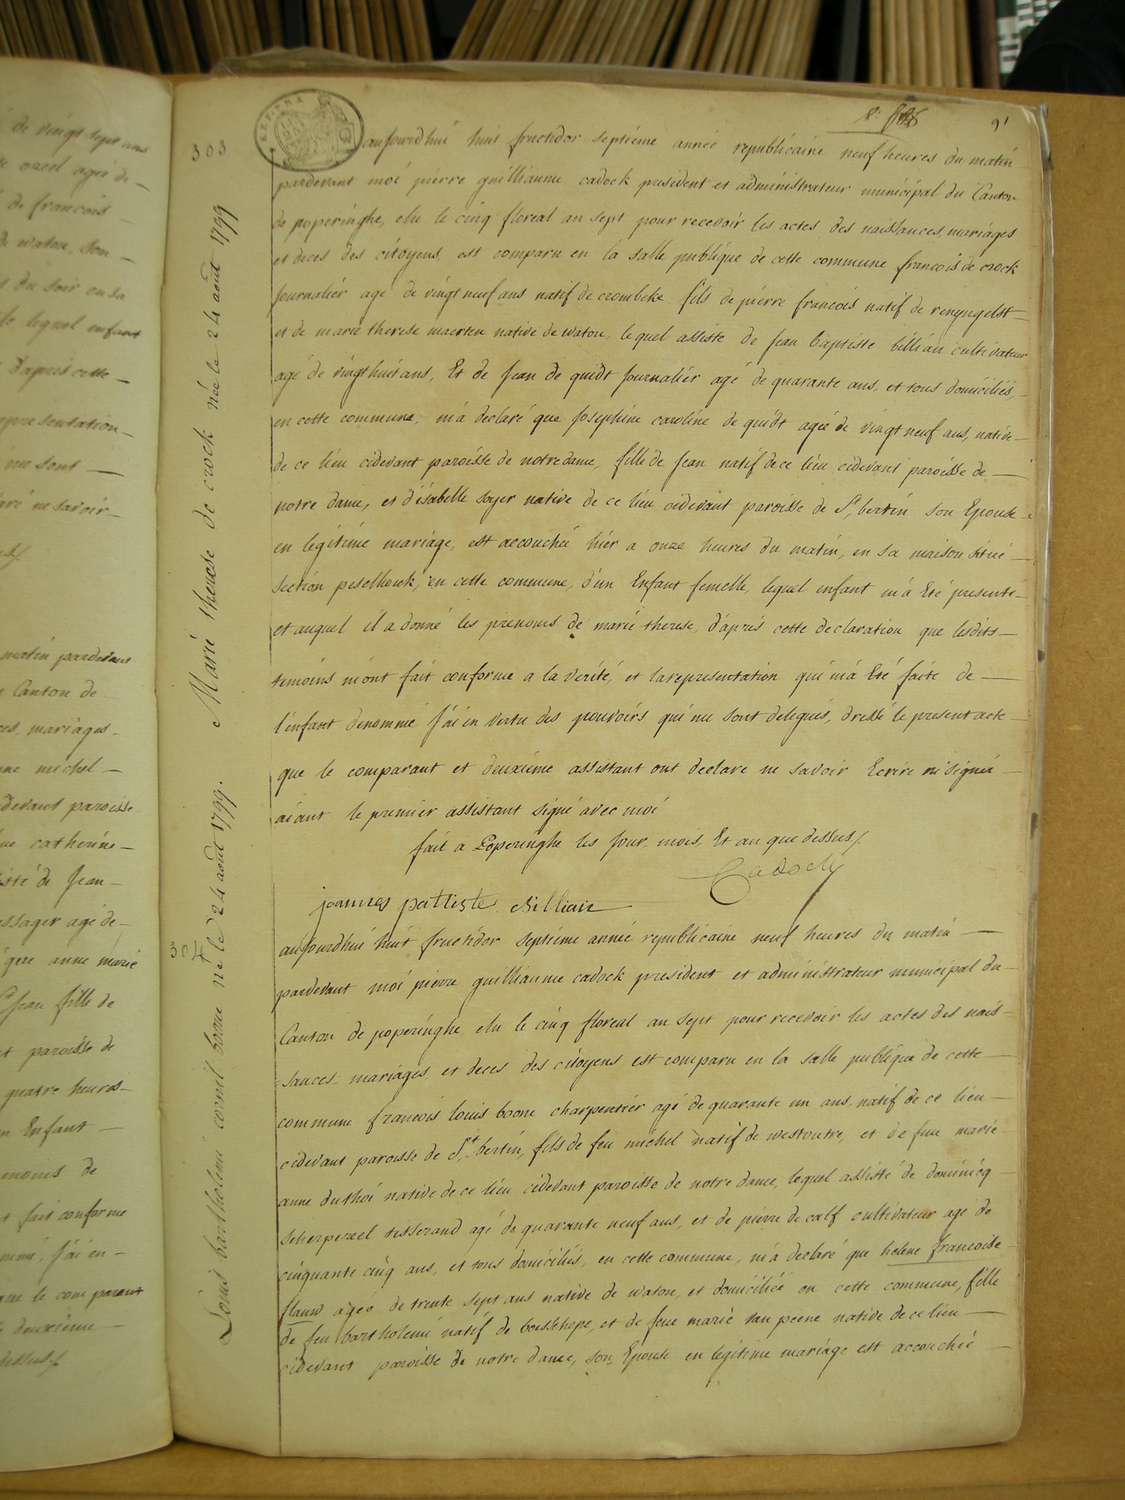 de vingt sept ans
oreel agée de
de francois
de watou, son
du soir en sa
lequel enfant
d'après cette
representation
me sont
ne savoir
matin pardevant
Canton de
mariages
michel
cidevant paroisse
catherine
de Jean
messager agé de
anne marie
Jean fille de
paroisse de
quatre heures
Enfant
prenoms de
fait conforme
J'ai en
que le comparant
deuxième
dessus
91
303
Marie therese de crock née le 24 août 1799
aujourdhui huit fructidor septieme année republicaine neuf heures du matin
pardevant moi pierre guilliaume cadock president et administrateur municipal du Canton
de poperinghe, elu le cinq floreal an sept pour recevoir les actes des naissances, mariages
et deces des citoyens, est comparu en la salle publique de cette commune francois de crock
journalier agé de vingt neuf ans natif de crombeke fils de pierre francois natif de renyngelst
et de marie therese maerten native de watou, lequel assisté de Jean baptiste billiau cultivateur
agé de vingt huit ans, Et de Jean de quidt journalier agé de quarante ans, et tous domiciliés,
en cette commune, m'a declaré que Josephine caroline de quidt agée de vingt neuf ans, native
de ce lieu cidevant paroisse de notre dame, fille de Jean natif de ce lieu cidevant paroisse de
notre dame, et d'isabelle soyer native de ce lieu cidevant paroisse de St. bertin son Epouse
en legitime mariage, est accouchée hier a onze heures du matin, en sa maison situé
section peselhoek, en cette commune, d'un Enfant femelle, lequel enfant m'a Eté presenté
et auquel il a donné les prenoms de marie therese, d'après cette declaration que lesdits
temoins m'ont fait conforme a la verité, et la representation qui m'a Eté faite de
l'enfant denommé J'ai en vertu des pouvoirs qui me sont delegués, dressé le present acte
que le comparant et deuxième assistant ont declaré ne savoir Ecrire ni signer
aiant le premier assistant signé avec moi
fait a Poperinghe les Jour, mois, Et an que dessus/.
Cadock
joannes pattiste billiau
304
Louis bartholemi cornil boone né le 24 août 1799.
aujourdhui huit fructidor septieme année republicaine neuf heures du matin
pardevant moi pierre guilliaume cadock president et administrateur municipal du
Canton de poperinghe elu le cinq floreal an sept pour recevoir les actes des nais-
sances, mariages, et deces des citoyens est comparu en la salle publique de cette
commune francois louis boone charpentier agé de quarante un ans, natif de ce lieu
cidevant paroisse de St. bertin, fils de feu michel natif de westoutre, et de feue marie
anne duthoi native de ce lieu cidevant paroisse de notre dame, lequel assisté de dominicq
scherpereel tisserand agé de quarante neuf ans, et de pierre de calf cultivateur agé de
cinquante cinq ans, et tous domiciliés, en cette commune, m'a declaré que helene francoise
flauw agée de trente sept ans native de watou, et domiciliée en cette commune, fille
de feu bartholemi natif de boesschepe, et de feue marie van peene native de ce lieu
cidevant paroisse de notre dame, son Epouse en legitime mariage est accouchée